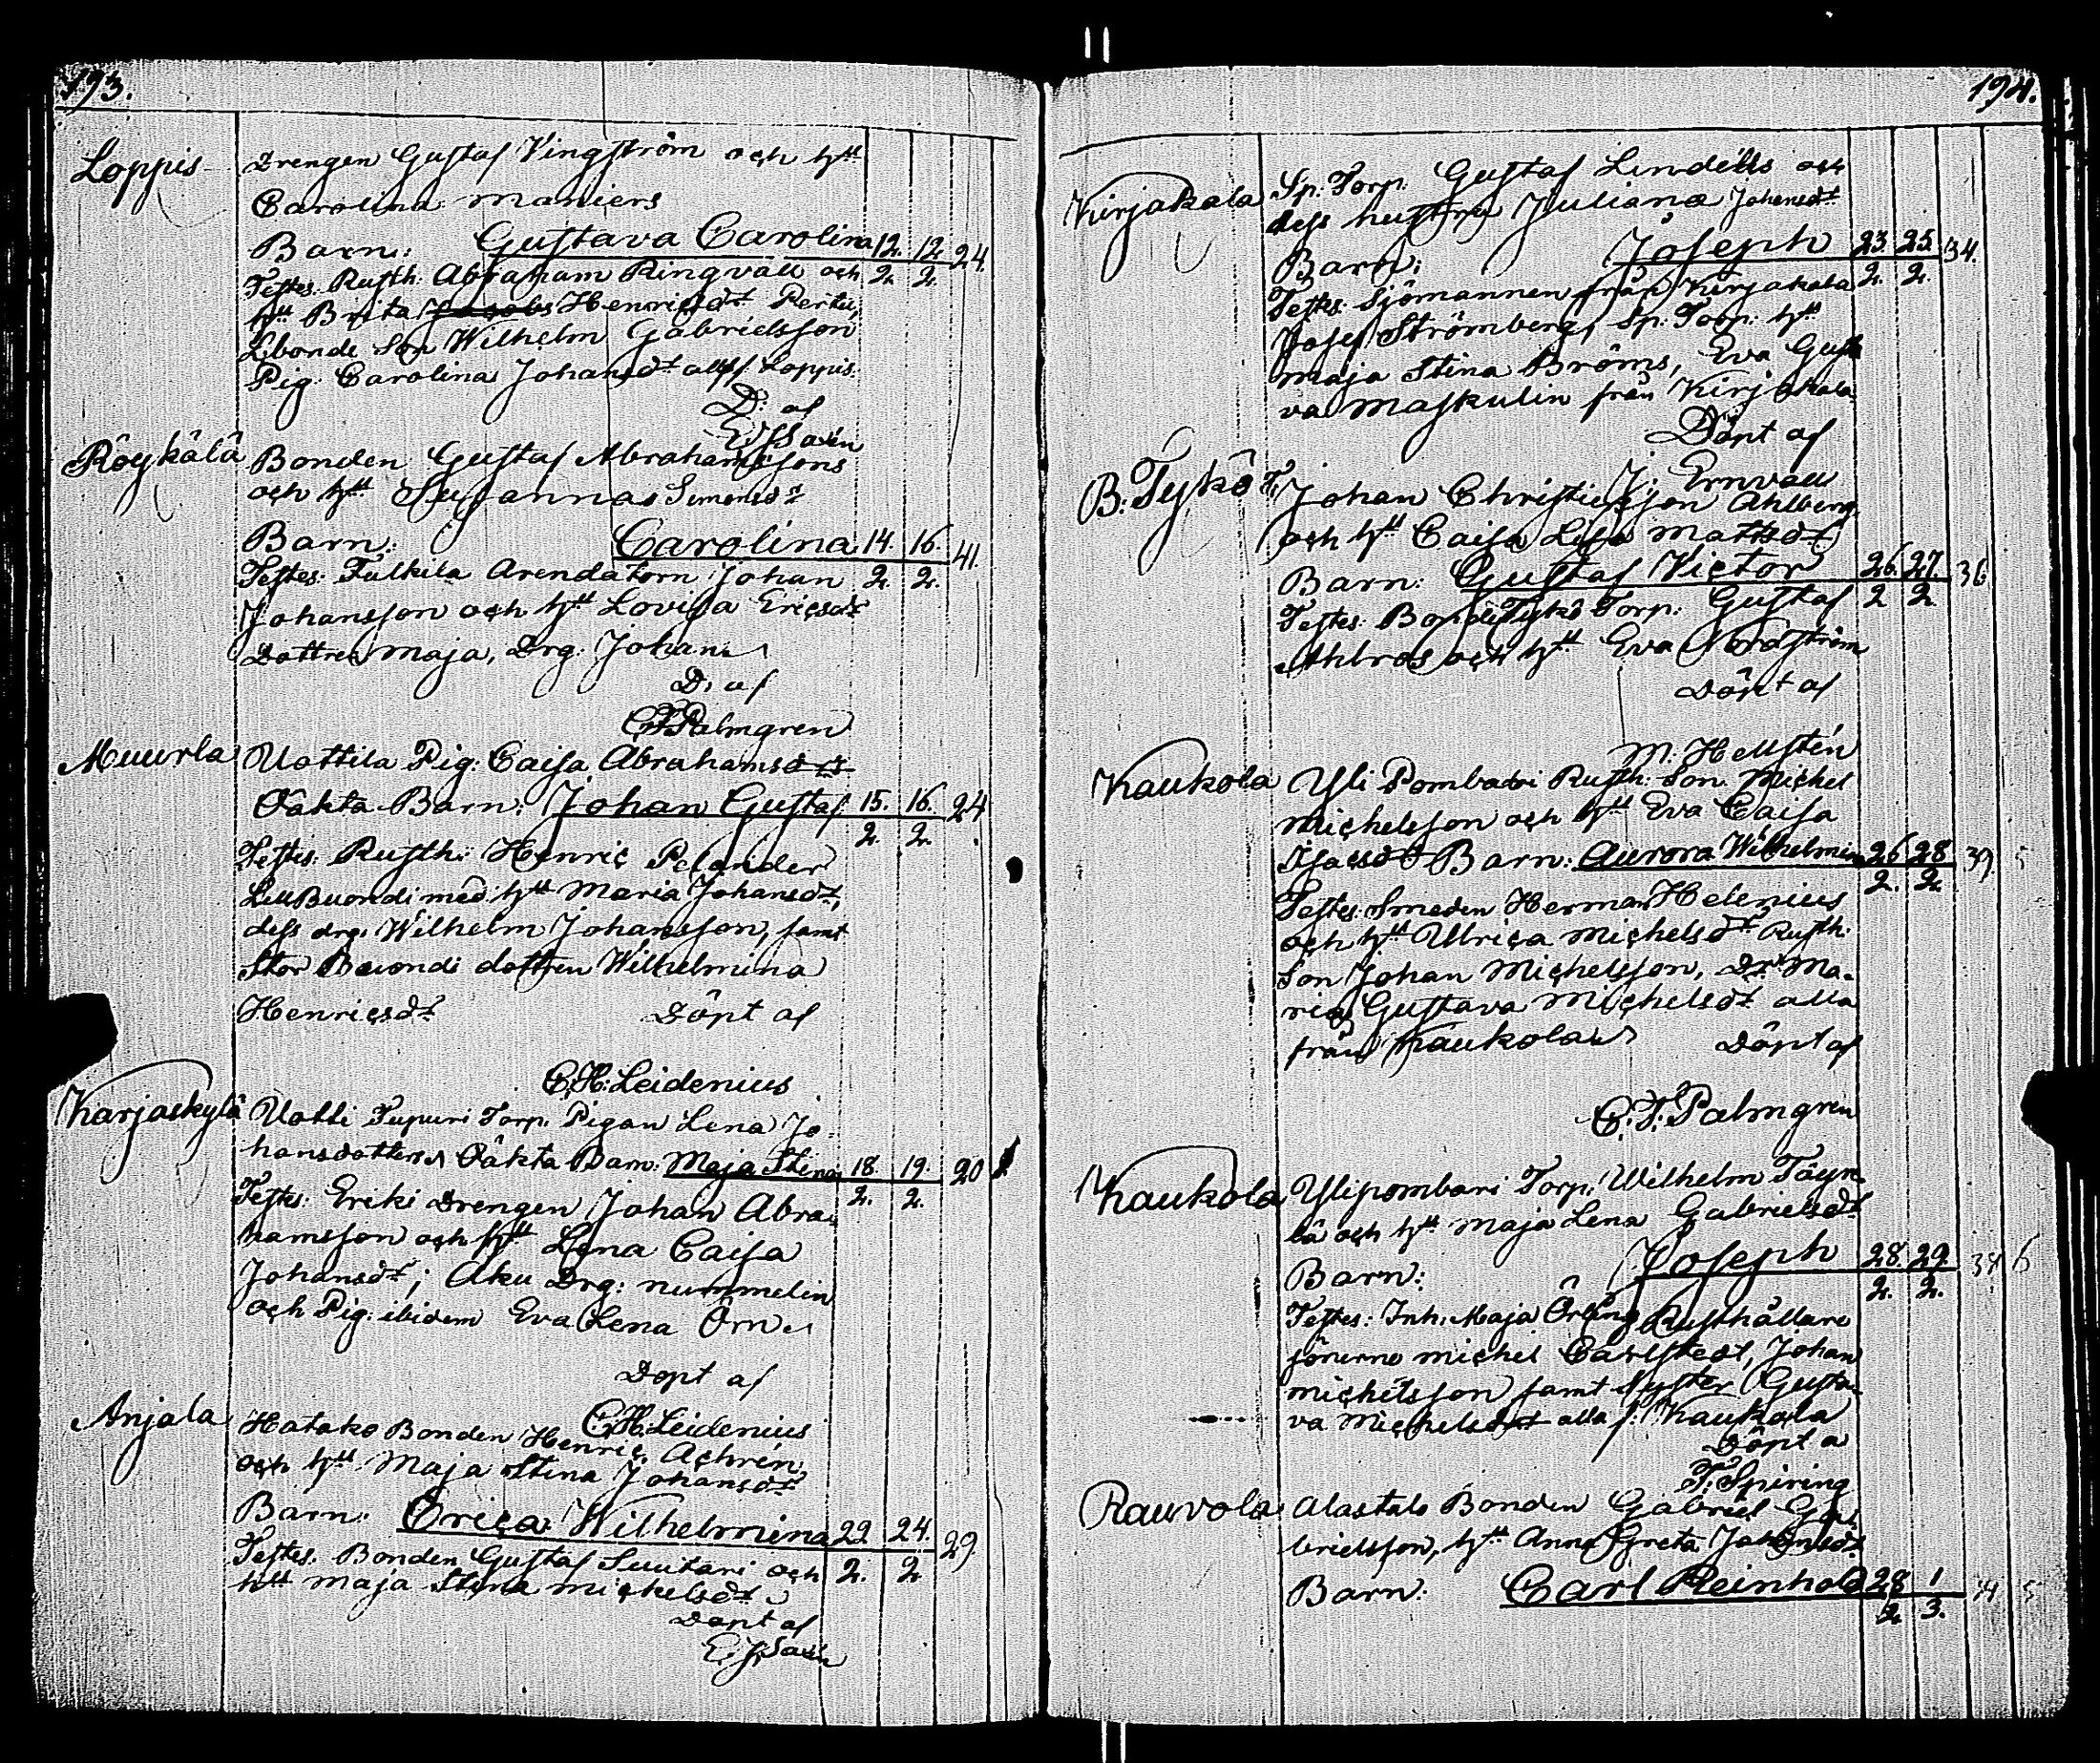 193.
Loppis Drengen Gustaf Vingström och hu
Carolina Maniers
Barn: Gustava Carolina 12. 12 24.
Testes. Rusth: Abraham Ringvall och 2. 2.
hu Brita Henricsdr Pertu,
Lbonde Son Wilhelm Gabrielsson
Pig. Carolina Johansdr allesf Loppis.
D: af
Röykälä Bonden Gustaf Abrahamssons
och hu Susannas Simonsdr
Barn: Carolina 14. 16. 41.
Testes: Arendatorn Johan 2. 2.
Johansson och hu Lovisa Ericsdr
Dottren Maja, Drg: Johan
D. af
C F Palmgren
Muurla Uottila Pig: Caisa Abrahamsdrs
Oäkta Barn: Johan Gustaf 15. 16. 24
2. 2.
Testes: Rusth: Henric Pelander
med hu Maria Johansdr,
dess drg. Wilhelm Johansson, samt
Stor dottren Wilhelmina
Henricsdr Döpt af
C. H: Leidenius
Karjaskylä Uotti Tupuri Torp. Pigan Lena Jo-
hansdotters Oäkta Barn: Maja Stina 18. 19. 20
Testes: Erki Drengen Johan Abra- 2. 2.
hamsson och hu Lena Caisa
Johansdr; Aku Drg: Nummelin
och Pig. ibidem Eva Lena Örn
Döpt af
C H Leidenius
Anjala Hatako Bonden Henric Achrén
och hu Maja Stina Johansdr
Barn: Erica Wilhelmina 22 24. 29
Testes. Bonden Gustaf Suutari och 2. 2
hu Maja Stina Michelsdr
Döpt af
194.
Kirjakala Sp: Torp: Gustaf Lindélls och
dess hustru Juliana Johansdr
Barn: Joseph 23 25 34.
Testes: Sjömannen från Kirjakala 2. 2.
Josef Strömberg, Sp: Torp: hu
Maja Stina Bröms, Eva Gusta
va Maskulin från Kirjakala
Döpt af
J: Ernvall
B: Tykö T, Johan Christiersson Ahlberg
och hu Caisa Lisa Mattsdr
Barn: Gustaf Victor 26. 27. 36
Testes: Bonde Tykö Torp: Gustaf 2 2
Ahlroos och hu Eva Nordström
Döpt af
M. Hellstén
Kaukola Yli Pombari Rusth: Son Michel
Michelsson och hu Eva Caisa
Isacsdr Barn: Aurora Wilhelmin 26. 28 39. 5
2. 2.
Testes: Smeden Herman Helenius
och hu Ulrica Michelsdr, Rusth:
Son Johan Michelsson, Dr Ma-
ria Gustava Michelsdr alla
från Kaukola Döpt af
C. F: Palmgren
Kaukola Ylipombari Torp: Wilhelm Täyk-
lä och hu Maja Lena Gabrielsdr
Barn: Joseph 28. 29. 6
2. 2.
Testes: Inh: Maja Örling, Rusthållare
sönerne Michel Carlstedt, Johan
Michelsson samt Syster Gusta-
va Michelsdr alla f: Kaukola
Döpt a
F. Spiring
Rauvola Alastalo Bonden Gabriel Ga-
brielsson, hu Anna Greta Johansdr
Barn: Carl Reinhold 28 1
2. 3.